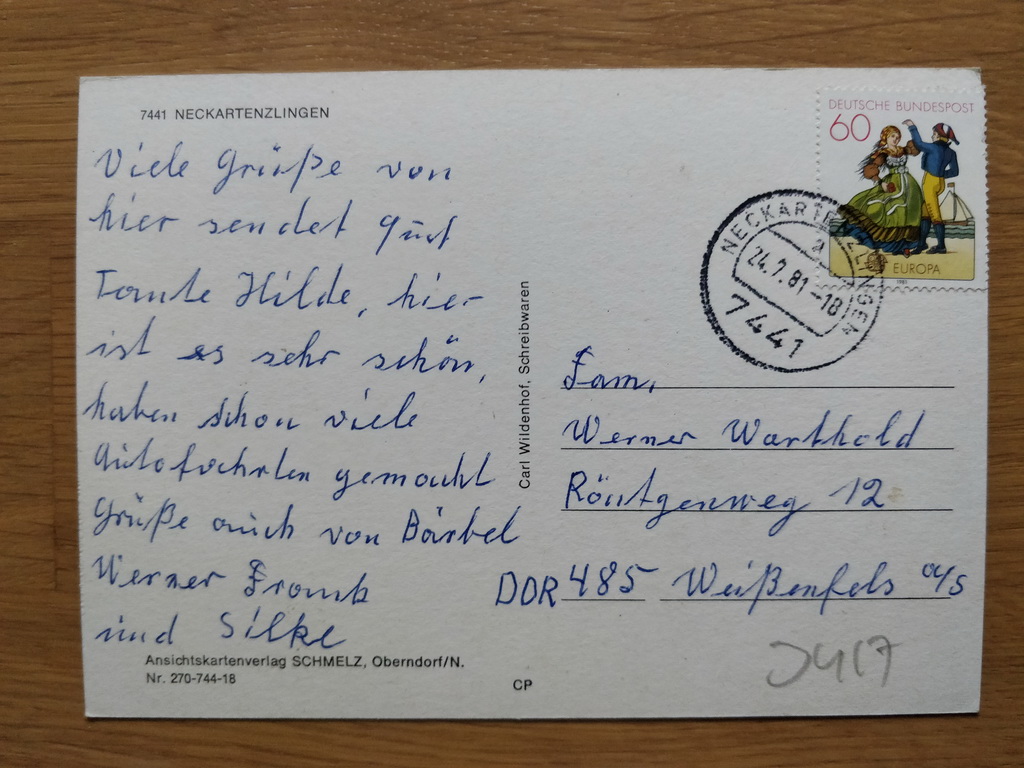 7441 NECKARTENZLINGEN
Viele Grüße von
hier sendet Euch
Tante Hilde, hier
ist es sehr schön,
haben schon viele
Autofahrten gemacht
Grüße auch von Bärbel
Werner Frank
und Silke
Ansichtskartenverlag SCHMELZ, Oberndorf/N.
Nr. 270-744-18
Carl Wildenhof, Schreibwaren
CP
DEUTSCHE BUNDESPOST
60
EUROPA
1981
NECKARTENZLINGEN
a
24.7.81-18
7441
Fam.
Werner Warthold
Röntgenweg 12
DDR 485 Weißenfels a/S